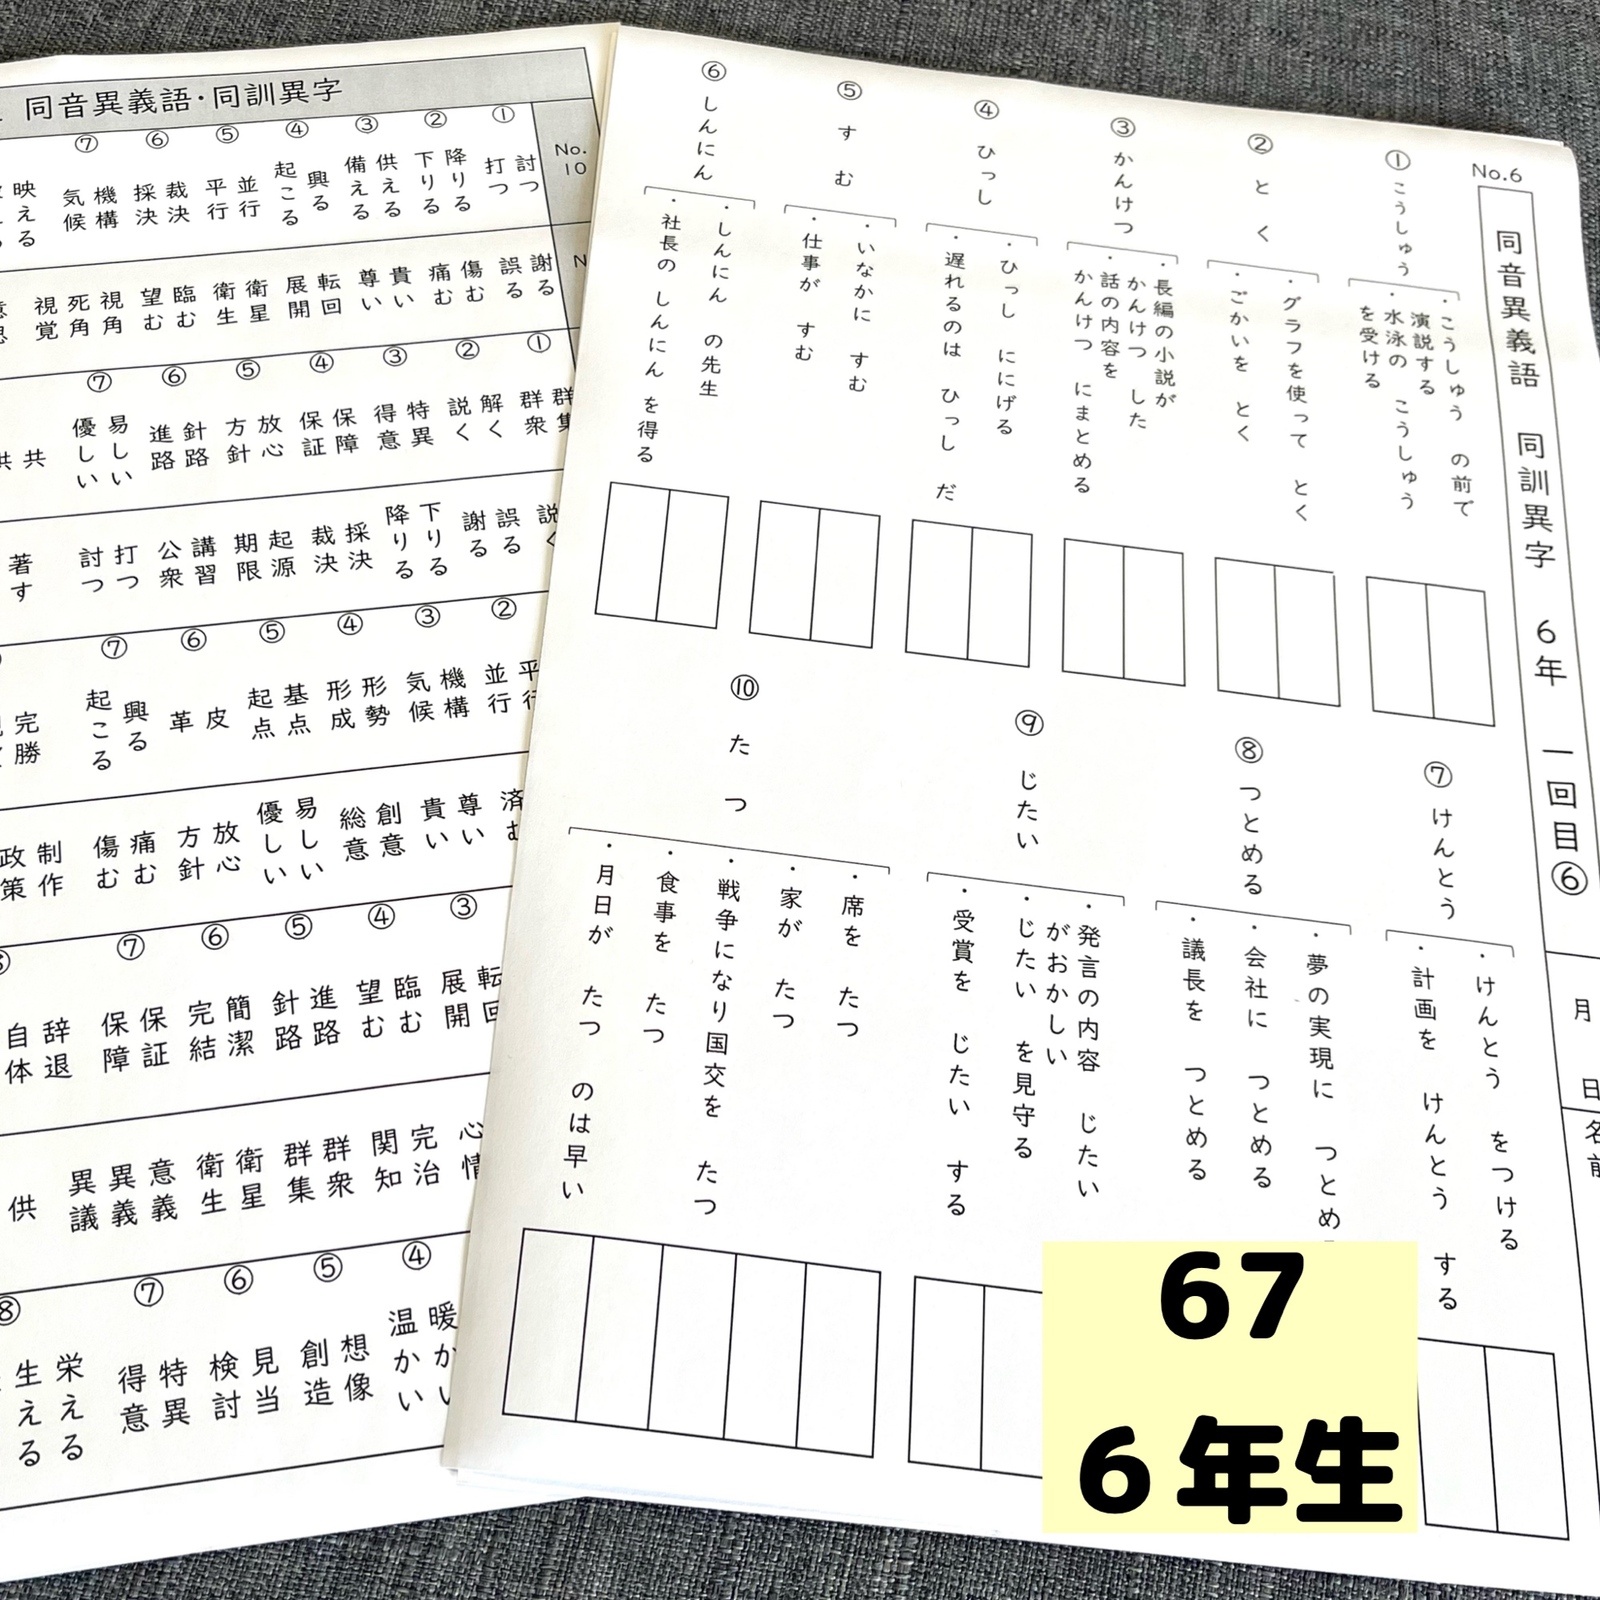 No.6
同音異義語 同訓異字 6年 一回目⑥
月 日
名前
① こうしゅう
・こうしゅう の前で
演説する
・水泳の こうしゅう
を受ける
② とく
・グラフを使って とく
・ごかいを とく
③ かんけつ
・長編の小説が
かんけつ した
・話の内容を
かんけつ にまとめる
④ ひっし
・ひっし ににげる
・遅れるのは ひっし だ
⑤ すむ
・いなかに すむ
・仕事が すむ
⑥ しんにん
・しんにん の先生
・社長の しんにん を得る
⑦ けんとう
・けんとう をつける
・計画を けんとう する
⑧ つとめる
・夢の実現に つとめ
・会社に つとめる
・議長を つとめる
⑨ じたい
・発言の内容 じたい
がおかしい
・じたい を見守る
・受賞を じたい する
⑩ たつ
・席を たつ
・家が たつ
・戦争になり国交を たつ
・食事を たつ
・月日が たつ のは早い
同音異義語・同訓異字
No.
10
① 討つ 打つ
② 降りる 下りる
③ 供える 備える
④ 興る 起こる
⑤ 並行 平行
⑥ 裁決 採決
⑦ 機構 気候
映える
N
謝る 誤る
傷む 痛む
貴い 尊い
転回 展開
衛星 衛生
臨む 望む
視角 死角
視覚
① 群集 群衆
② 解く 説く
③ 特異 得意
④ 保障 保証
⑤ 放心 方針
⑥ 針路 進路
⑦ 易しい 優しい
共 供
説く
誤る 謝る
下りる 降りる
採決 裁決
起源 期限
講習 公衆
打つ 討つ
著す
② 平行 並行
③ 機構 気候
④ 形勢 形成
⑤ 基点 起点
⑥ 皮 革
⑦ 興る 起こる
完勝
済む
尊い 貴い
創意 総意
易しい 優しい
放心 方針
痛む 傷む
制作 政策
③ 転回 展開
④ 臨む 望む
⑤ 進路 針路
⑥ 簡潔 完結
⑦ 保証 保障
辞退 自体
心情
完治 関知
群衆 群集
衛星 衛生
意義 異義 異議
供
④ 暖かい 温かい
⑤ 想像 創造
⑥ 見当 検討
⑦ 特異 得意
⑧ 栄える 生える
67
6年生